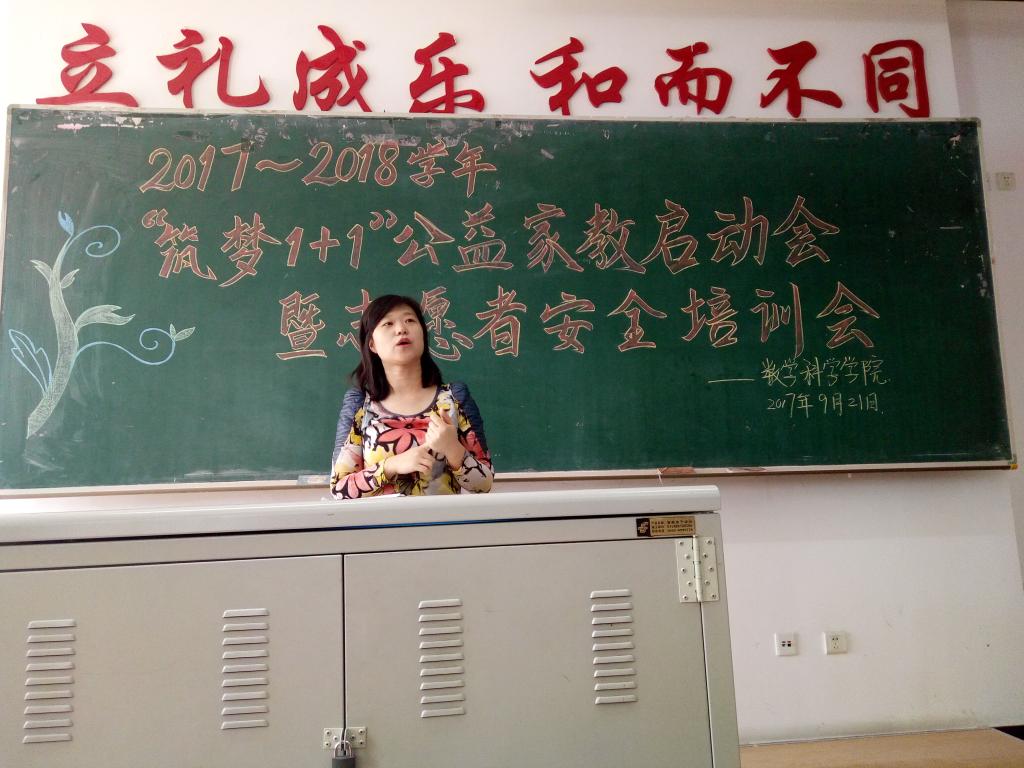 立礼成乐 和而不同
2017~2018学年
“筑梦1+1”公益家教启动会
暨志愿者安全培训会
——数学科学学院
2017年9月21日